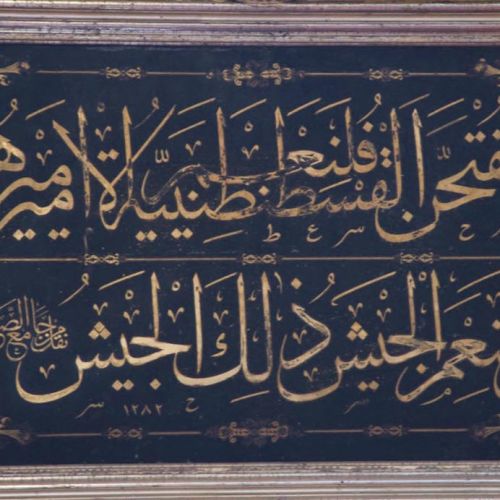 فتحن القسطنطينية فلنعم الامير اميره
نعم الجيش ذلك الجيش
١٢٨٢